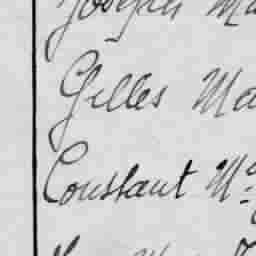 Joseph Ma
Gilles Ma
Constant M